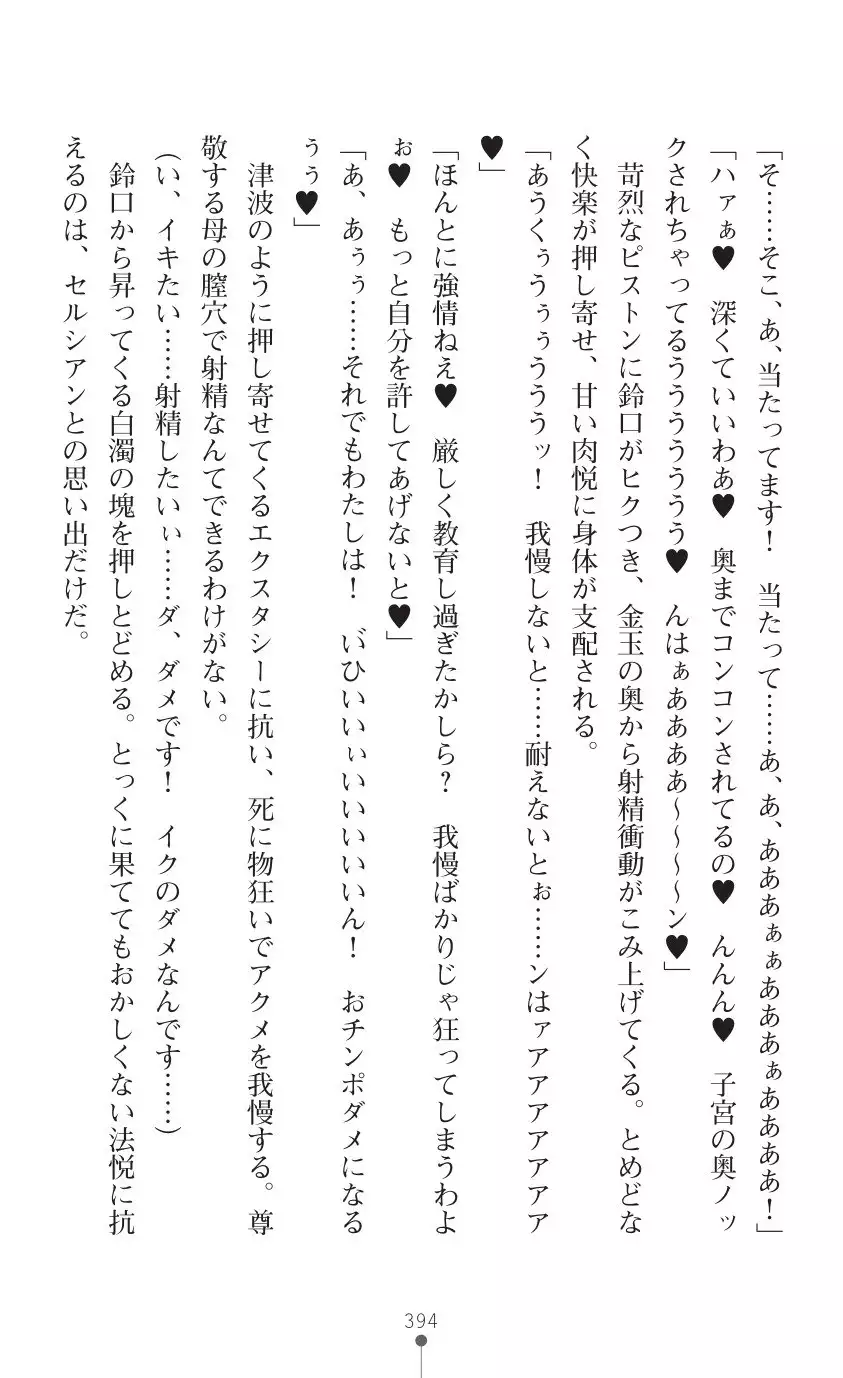 「そ……そこ、あ、当たってます！　当たって……あ、あ、あああぁぁあああぁああああ！」
「ハァぁ♥　深くていいわあ♥　奥までコンコンされてるの♥　んんん♥　子宮の奥ノッ
クされちゃってるうううううう♥　んはぁああああ～～～～ン♥」
　苛烈なピストンに鈴口がヒクつき、金玉の奥から射精衝動がこみ上げてくる。とめどな
く快楽が押し寄せ、甘い肉悦に身体が支配される。
「あうくぅうぅぅうううッ！　我慢しないと……耐えないとぉ……ンはァアアアアアアア
♥」
「ほんとに強情ねえ♥　厳しく教育し過ぎたかしら？　我慢ばかりじゃ狂ってしまうわよ
ぉ♥　もっと自分を許してあげないと♥」
「あ、あぅぅ……それでもわたしは！　い゛ひいいぃいいいいいん！　おチンポダメになる
ぅぅ♥」
　津波のように押し寄せてくるエクスタシーに抗い、死に物狂いでアクメを我慢する。尊
敬する母の膣穴で射精なんてできるわけがない。
（い、イキたい……射精したいぃ……ダ、ダメです！　イクのダメなんです……）
　鈴口から昇ってくる白濁の塊を押しとどめる。とっくに果ててもおかしくない法悦に抗
えるのは、セルシアンとの思い出だけだ。
394